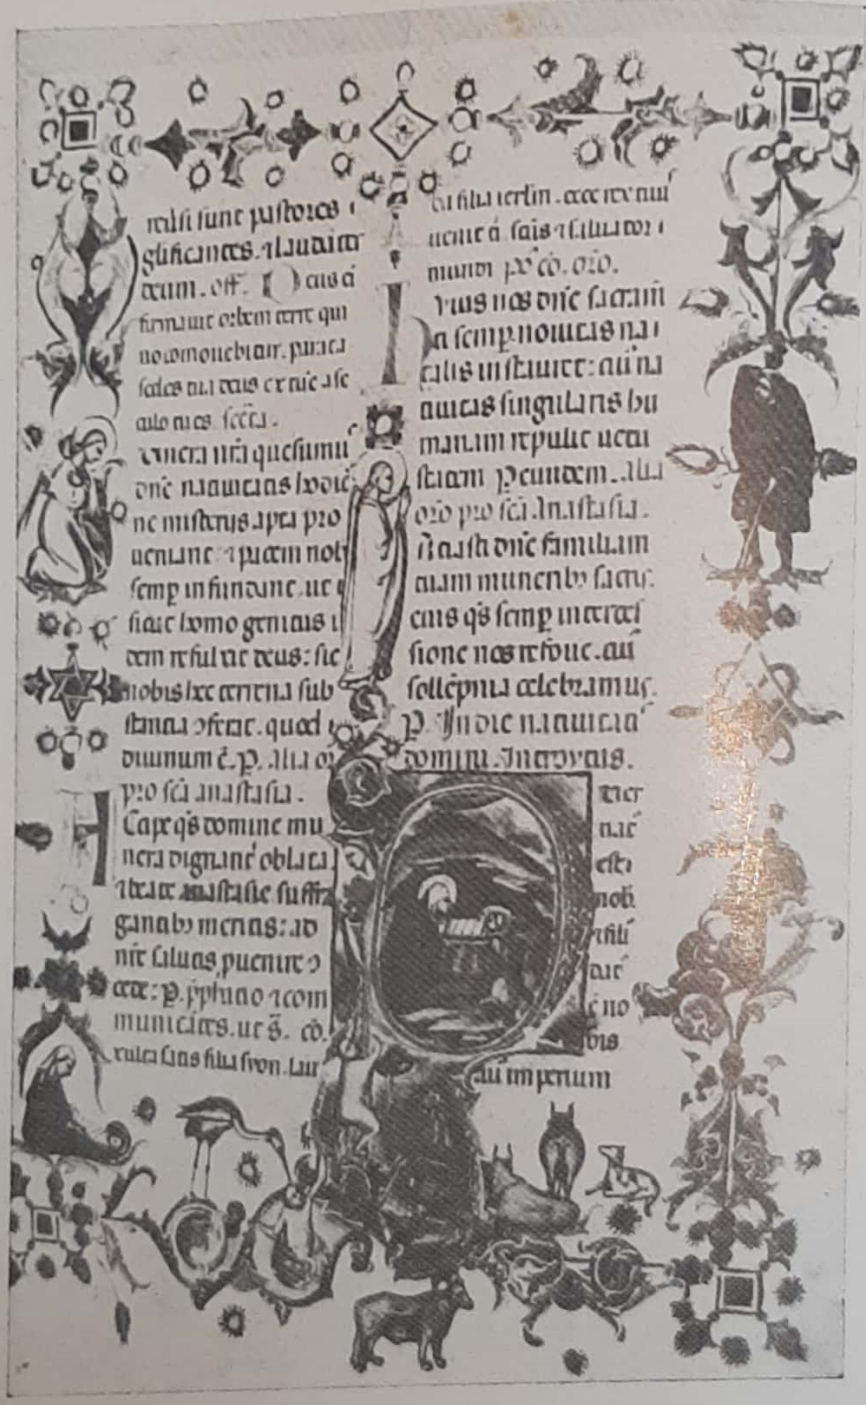 pastores
glificantes. ⁊ laudātes
deum. off. Deus
firmavit orbem terre qui
parata
sedes tua deus ex tūc a se
culo tu es.
Munera nr̄a quesumus
dn̄e nativitatis hodier
ne misterijs apta pro
ueniant ⁊ pacem nob
semp infundant. ut
sicut homo genitus i
dem refulsit deus: sic
nobis hec terrena sub
stantia ɔferat. quod
diuinum ē. P. Alia or
pro sc̄a anastasia.
Accipe qs domine mu
nera dignant oblata
⁊ beate anastasie suffra
gantib meritis: ad
nr̄e salutis
cede: P. ⁊ com
municātes. ut s̄. cō.
Exulta satis filia syon. lau
da filia ierlm. ecce rex tuus
uenit sc̄s ⁊ saluator
mundi pꝰ cō. oro.
Huius nos dn̄e sacram
ti semp nouitas na
talis instauret: cuiꝰ na
tiuitas singularis hu
manam repulit uetu
statem P eundem. Alia
oro pro sc̄a Anastasia.
Satiasti dn̄e familiam
tuam muneribꝰ sacris.
eius qs semp interces
sione nos refoue. cuiꝰ
sollēpnia celebramus.
P. In die natiuitatis
domini. Introytus.
Puer
nat
est
nob
⁊ fili
dat
ē no
bis
cuiꝰ imperium